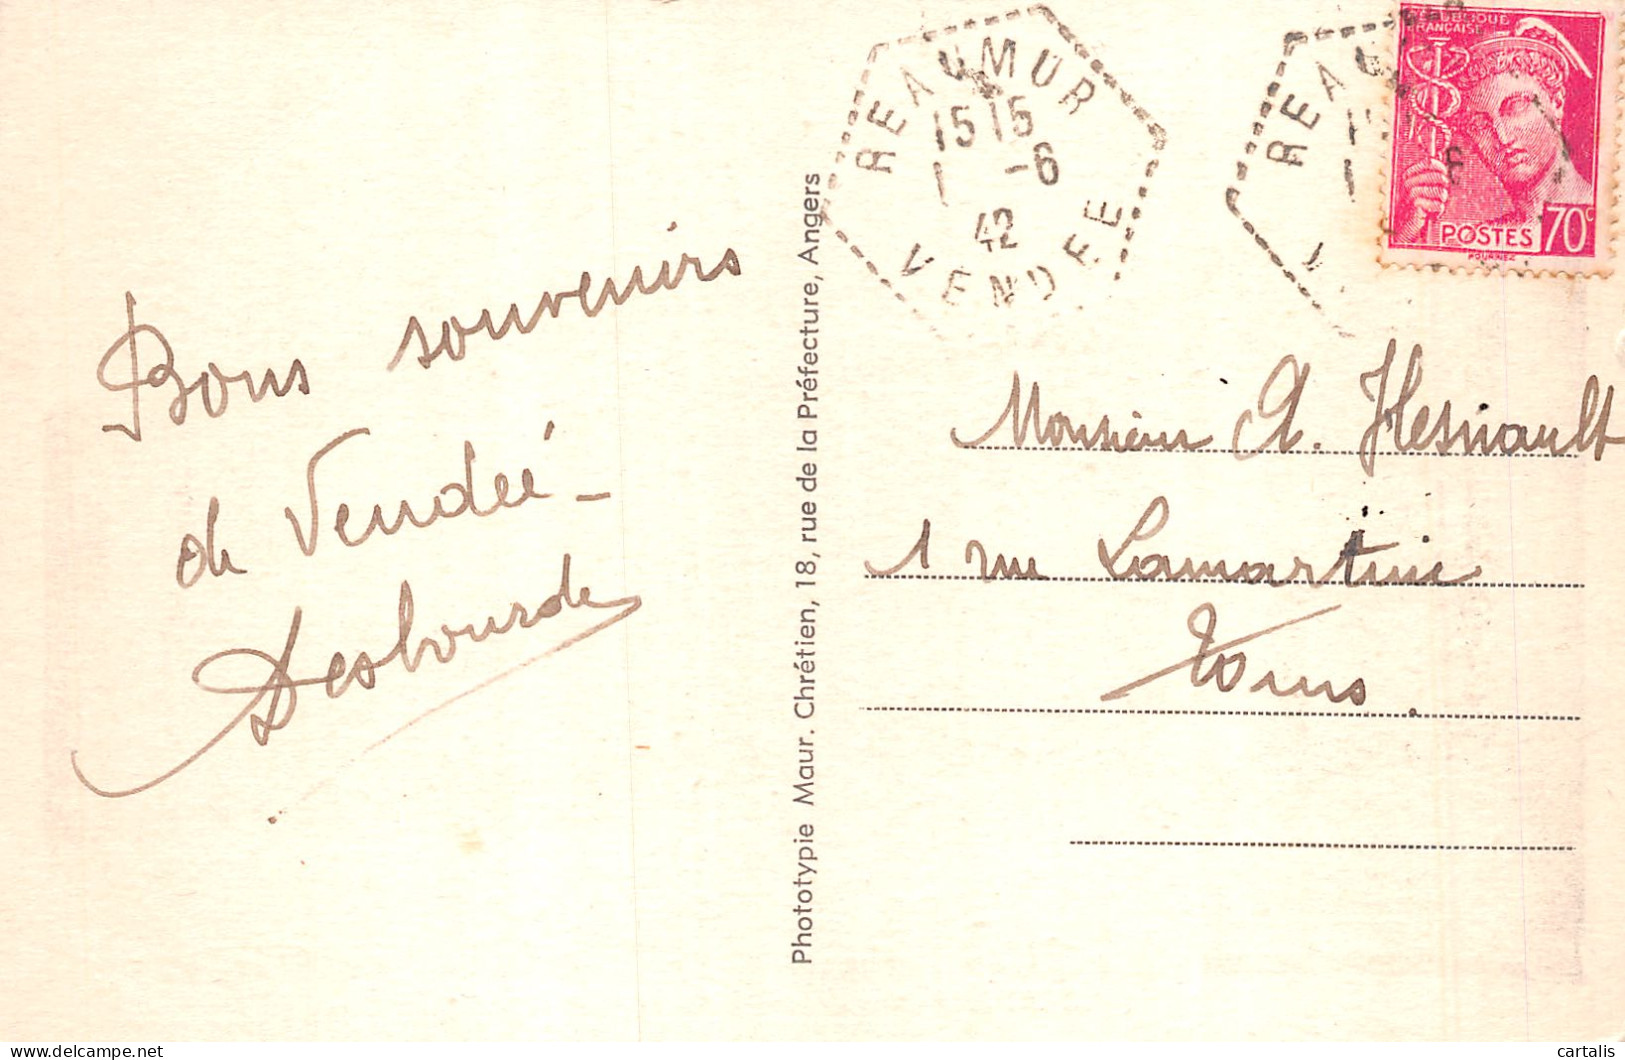 Bons souvenirs
de Vendée –
Desbourdes
Phototypie Maur. Chrétien, 18, rue de la Préfecture, Angers
REAUMUR
15 15
1 -6
42
VENDEE
REAU
6
V
REPUBLIQUE
FRANÇAISE
POSTES 70c
Monsieur A. Hesnault
1 rue Lamartine
Tours.
cartalis
delcampe.net